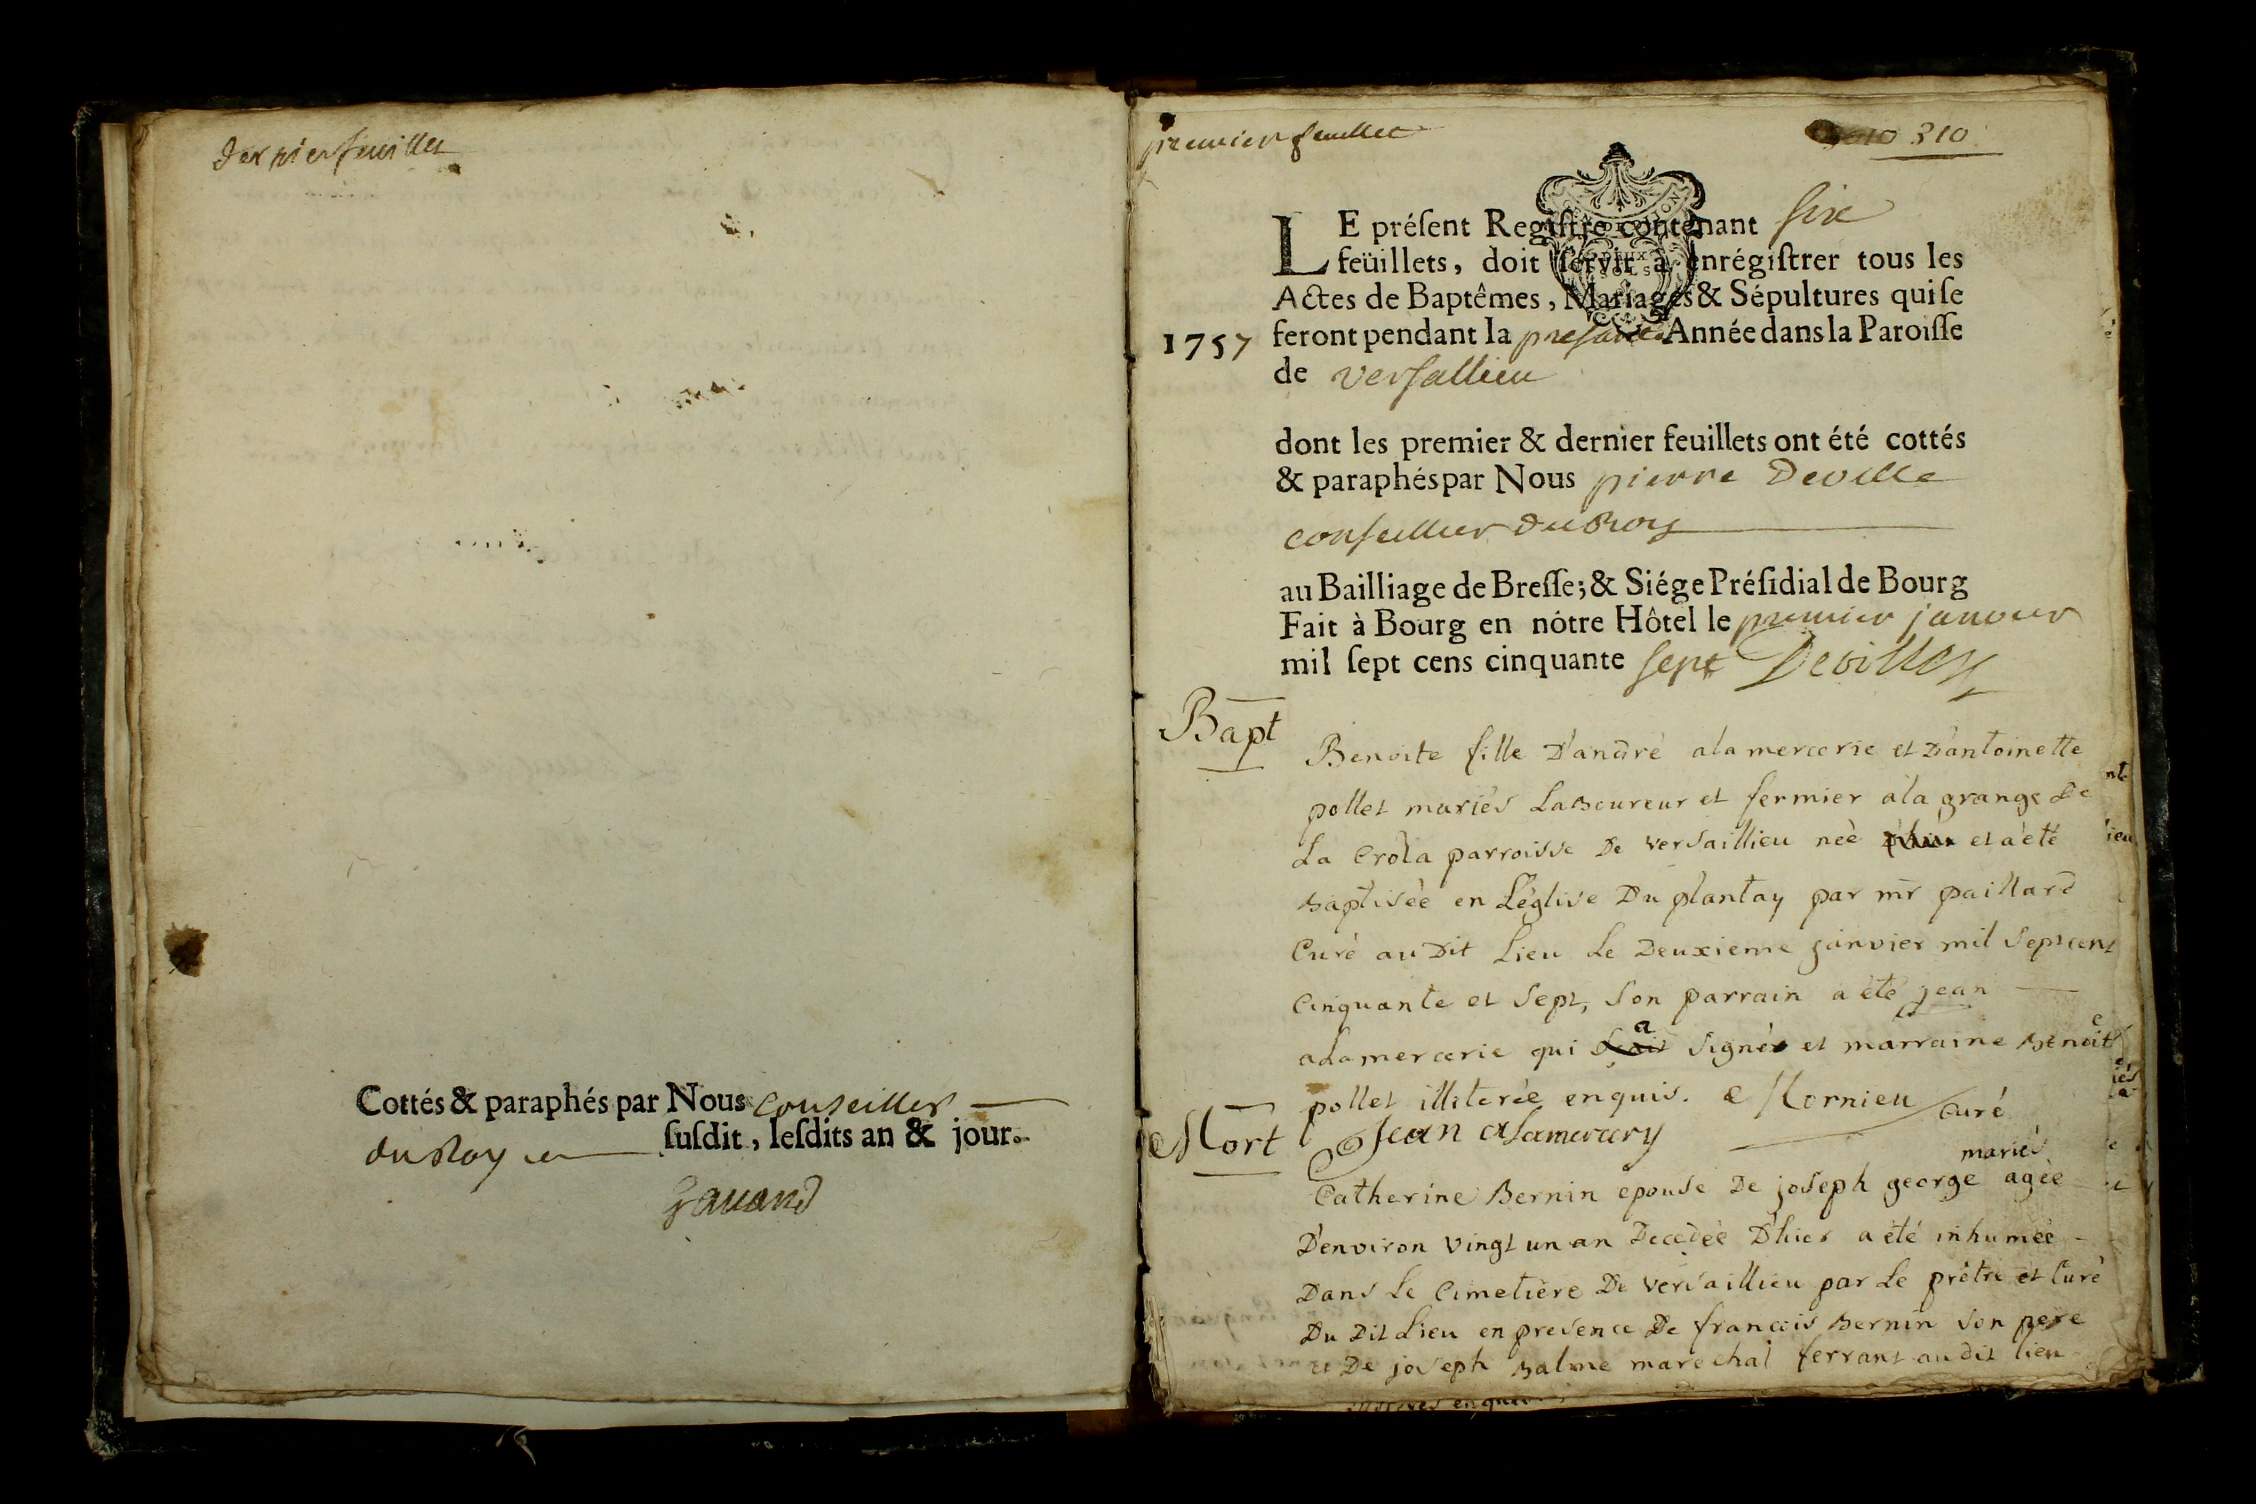 dernier feuillet
Cottés & paraphés par Nous conseiller
du Roy susdit, lesdits an & jour.
premier feuillet
310
LE présent Registre contenant six
feüillets, doit servir à enrégistrer tous les
Actes de Baptêmes, Mariages & Sépultures qui se
1757 feront pendant la presante Année dans la Paroisse
de versallieu
dont les premier & dernier feuillets ont été cottés
& paraphés par Nous pierre Deville
conseiller du Roy
au Bailliage de Bresse; & Siége Présidial de Bourg
Fait à Bourg en nôtre Hôtel le premier janvier
mil sept cens cinquante sept Deville
Bapt
Benoite fille D'andré alamercerie et D'antoinette
pollet mariés Laboureur et fermier a la grange De
La Crola parroisse De versaillieu neè et a eté
Baptiseè en L'église Du plantay par mr paillard
Curé au Dit Lieu Le Deuxieme janvier mil sept cent
Cinquante et sept, son parrain a été jean
alamercerie qui a signé et marraine Benoite
pollet illiterée enquis. Curé
Mort
Jean alamercery
mariés
Catherine Bernin epouse De joseph george ageè
D'environ vingt un an Decedeè D'hier a été inhumeè
Dans Le Cimetière De versaillieu par Le prêtre et Curé
Du Dit Lieu en presence De francois Bernin son pere
et De joseph Balme marechal ferrant au dit lieu